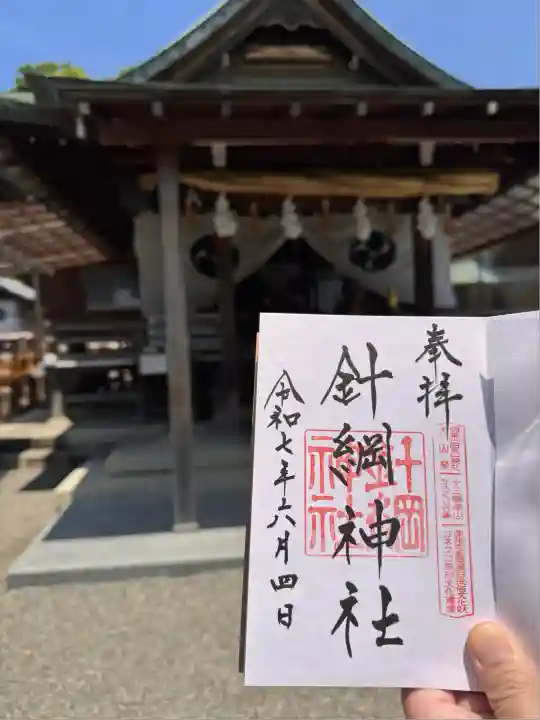 奉拝
針綱神社
令和七年六月四日
針綱
神社